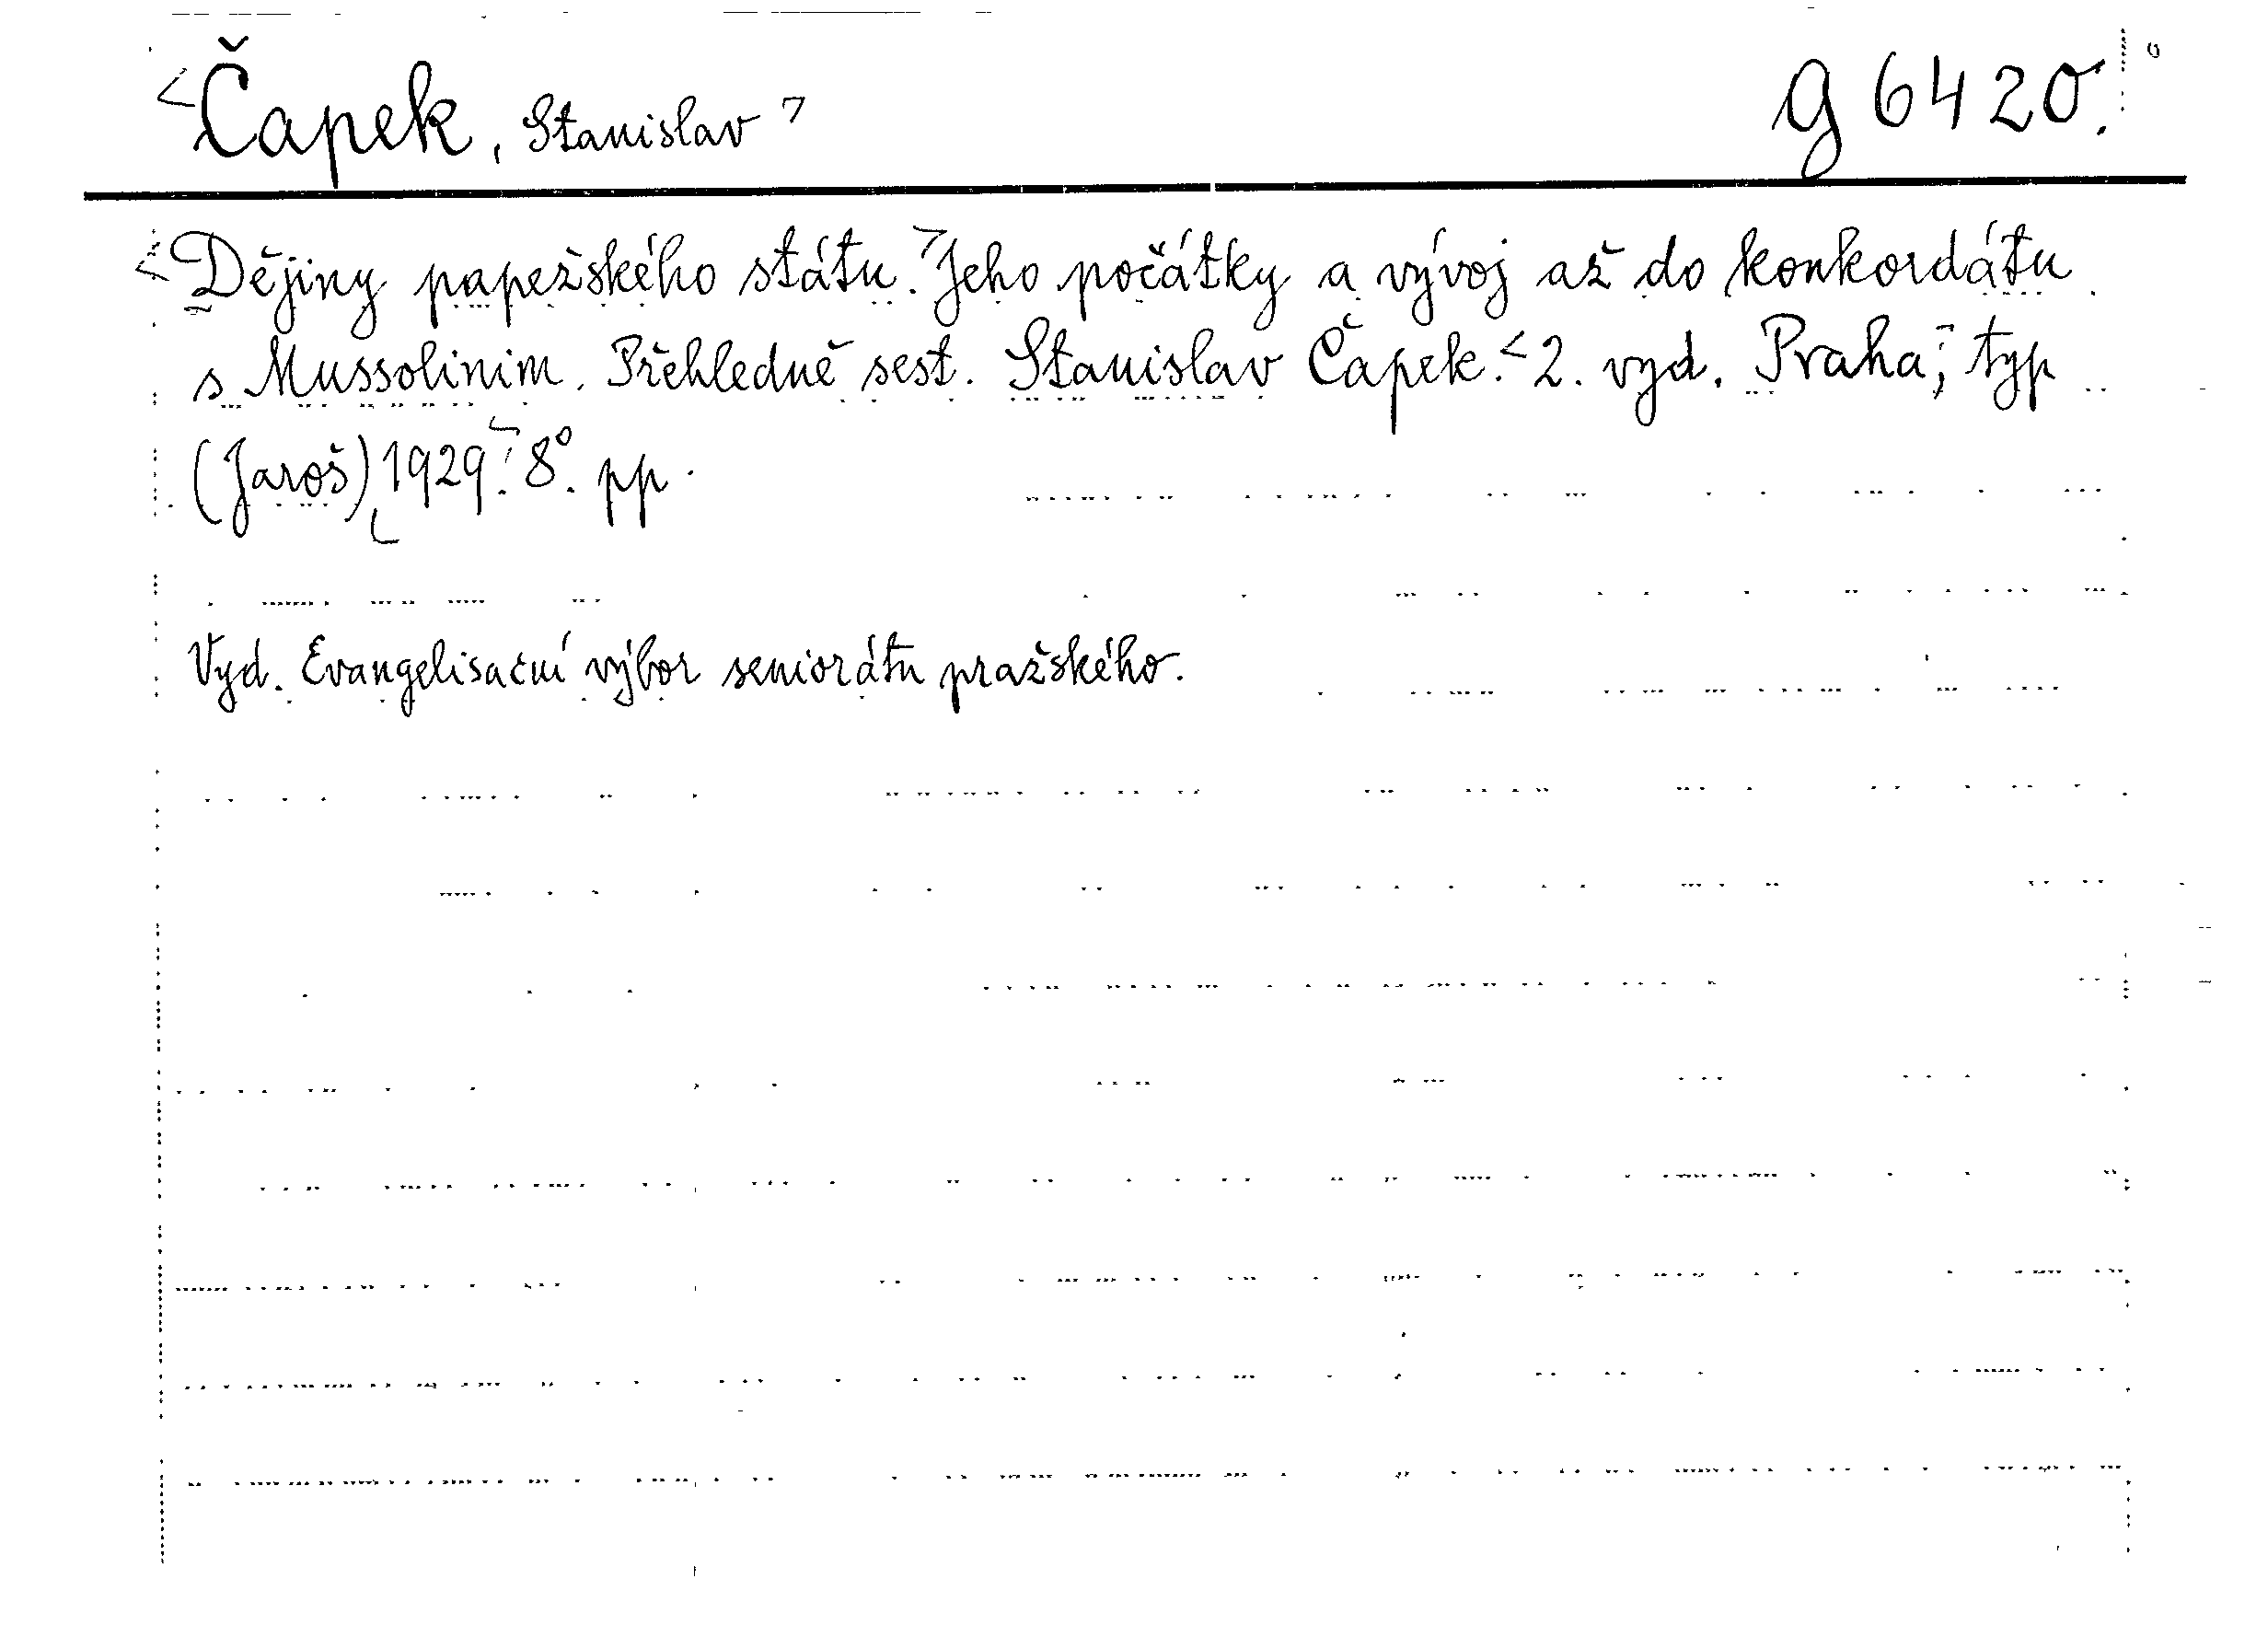 Čapek, Stanislav
g 6420.
Dějiny papežského státu. Jeho počátky a vývoj až do konkordátu
s Mussolinim. Přehledně sest. Stanislav Čapek. 2. vyd. Praha, typ
(Jaroš) 1929. 8°. pp.
Vyd. Evangelisační výbor seniorátu pražského.